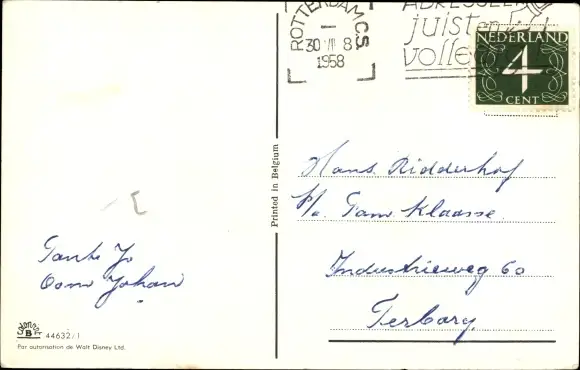 ROTTERDAM C.S.
30 VII 8
1958
ADRESSEER
juist en
volledig
NEDERLAND
4
CENT
Printed in Belgium
Hans Ridderhof
p/a. Fam Klaasse.
Industrieweg 60
Terborg.
Tante Jo
Oom Johan
B 44632/1
Par autorisation de Walt Disney Ltd.